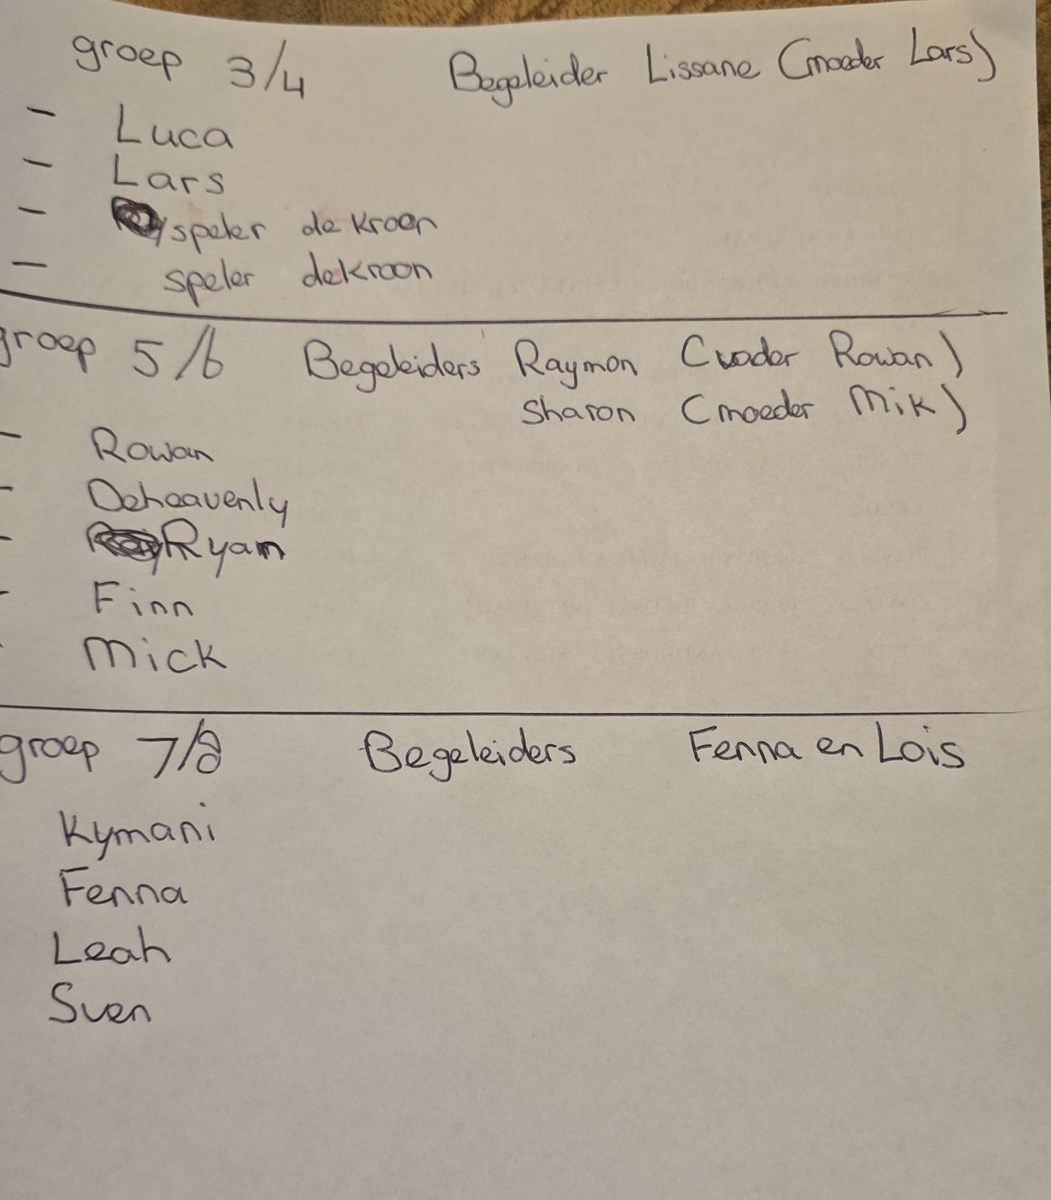 groep 3/4 Begeleider Lissane (moeder Lars)
- Luca
- Lars
- speler de Kroon
- speler de Kroon
groep 5/6 Begeleiders Raymon (vader Rowan)
Sharon (moeder Mik)
- Rowan
- Deheavenly
- Ryan
- Finn
- Mick
groep 7/8 Begeleiders Fenna en Lois
Kymani
Fenna
Leah
Sven